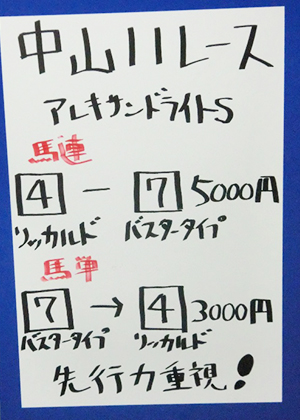 中山11レース
アレキサンドライトS
馬連
4 － 7 5000円
リッカルド バスタータイプ
馬単
7 → 4 3000円
バスタータイプ リッカルド
先行力重視！